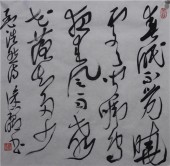 春眠不觉晓
处处闻啼鸟
夜来风雨声
花落知多少
孟浩然诗